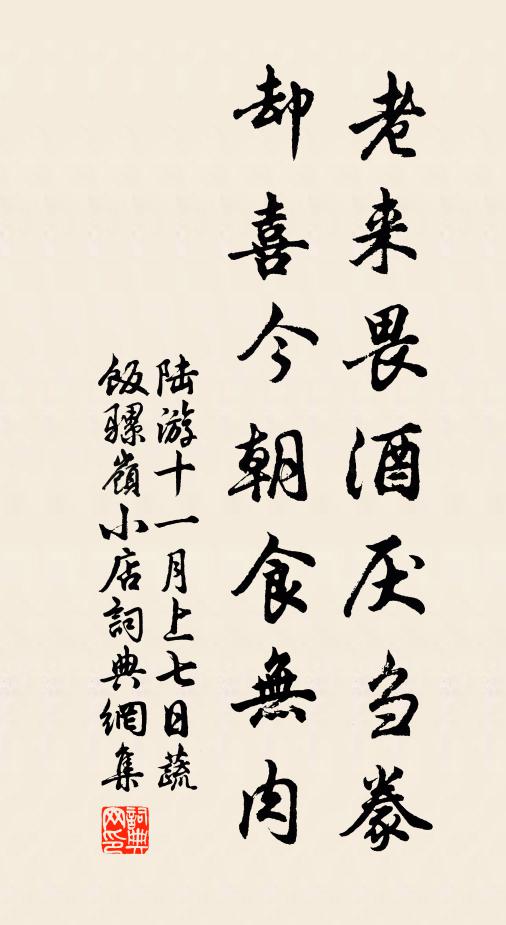 老来畏酒厌刍豢
却喜今朝食無肉
陆游十一月上七日蔬
飯騾嶺小店詞典網集
詞典
网印